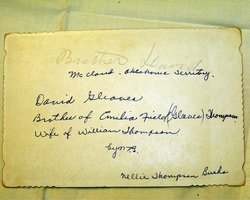 Brother David
McLoud, Oklahoma Territory.
David Gleaves
Brother of Emilia Field (Gleaves) Thompson
Wife of William Thompson
by N.B.
Nellie Thompson Burks